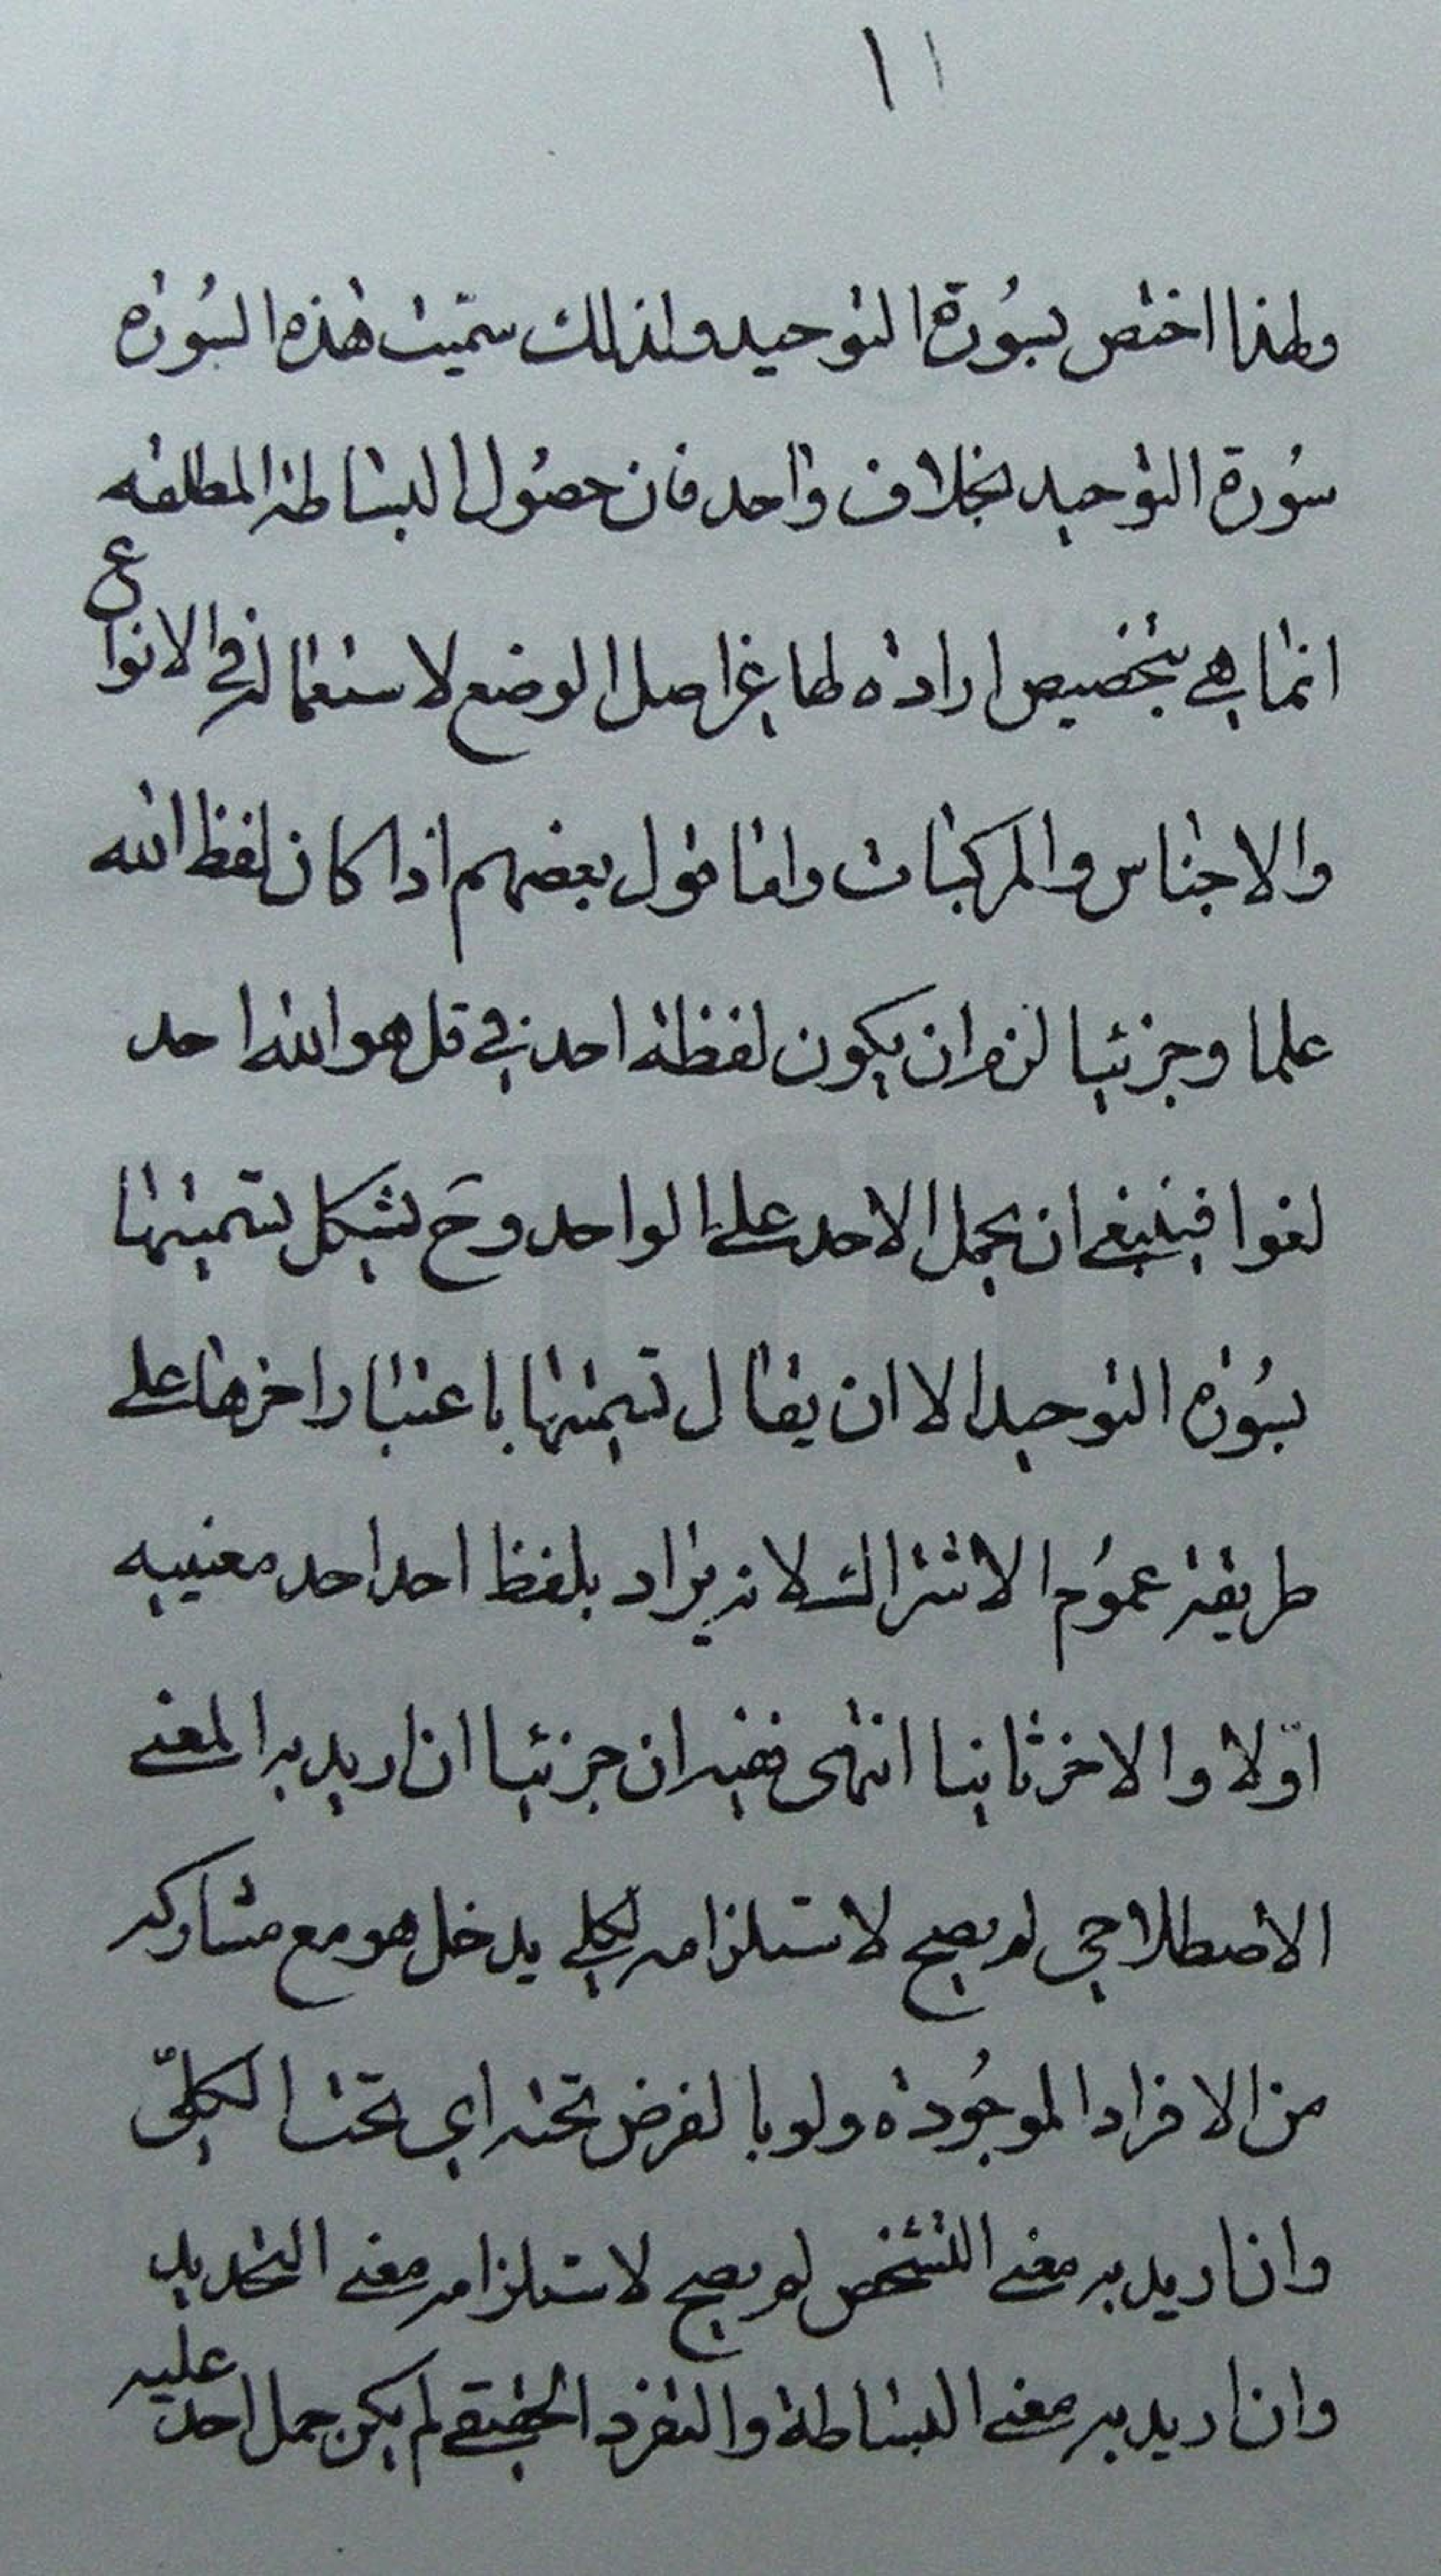 ١١
ولهذا اختص بسُورة التوحيد ولذلك سمّيت هذه السُورة
سُورة التوحيد بخلاف واحد فان حصُول البساطة المطلقه
انما هي بتخصيص ارادة لها غير اصل الوضع لاستعماله في الانواع
والاجناس والمركبات واما قول بعضهم اذا كان لفظ الله
علما وجزئيا لزم ان يكون لفظة احد في قل هو الله احد
لغوا فينبغي ان يحمل الاحد على الواحد وحَ يشكل تسميتها
بسُورة التوحيد الا ان يقال تسميتها باعتبار اخرها على
طريقة عمُوم الاشتراك لانه يراد بلفظ احد احد معنييه
اوّلا والاخر ثانيا انتهى ففيه ان جزئيا ان اريد به المعنى
الاصطلاحي لم يصح لاستلزامه لكلي يدخل هو مع مشاركه
من الافراد الموجُودة ولو بالفرض تحته اي تحت الكلىّ
وان اريد به معنى التشخص لم يصح لاستلزامه معنى التحديد
وان اريد به معنى البساطة والتفرد الحقيقي لم يكن حمل احد عليه